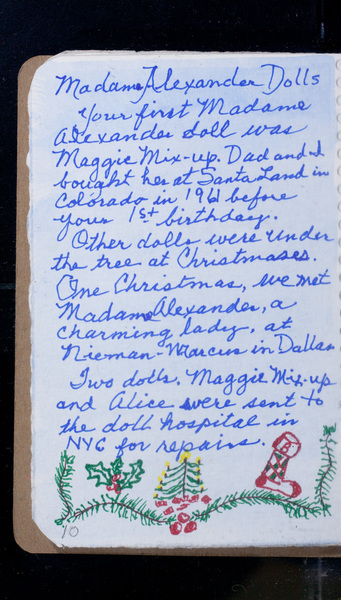 Madame Alexander Dolls
Your first Madame
Alexander doll was
Maggie Mix-up. Dad and I
bought her at Santa Land in
Colorado in 1961 before
your 1st birthday.
Other dolls were under
the tree at Christmases.
One Christmas, we met
Madame Alexander, a
charming lady, at
Nieman-Marcus in Dallas
Two dolls, Maggie Mix-up
and Alice were sent to
the doll hospital in
NYC for repairs.
10